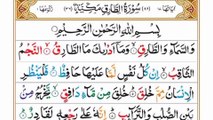 سُوْرَةُ الطَّارِقِ مَكِّيَّةٌ
بِسْمِ اللّٰهِ الرَّحْمٰنِ الرَّحِيْمِ
وَالسَّمَآءِ وَالطَّارِقِ وَمَآ اَدْرٰىكَ مَا الطَّارِقُ النَّجْمُ
الثَّاقِبُ اِنْ كُلُّ نَفْسٍ لَّمَّا عَلَيْهَا حَافِظٌ فَلْيَنْظُرِ
الْاِنْسَانُ مِمَّ خُلِقَ خُلِقَ مِنْ مَّآءٍ دَافِقٍ يَّخْرُجُ
مِنْۢ بَيْنِ الصُّلْبِ وَالتَّرَآئِبِ اِنَّهٗ عَلٰى رَجْعِهٖ